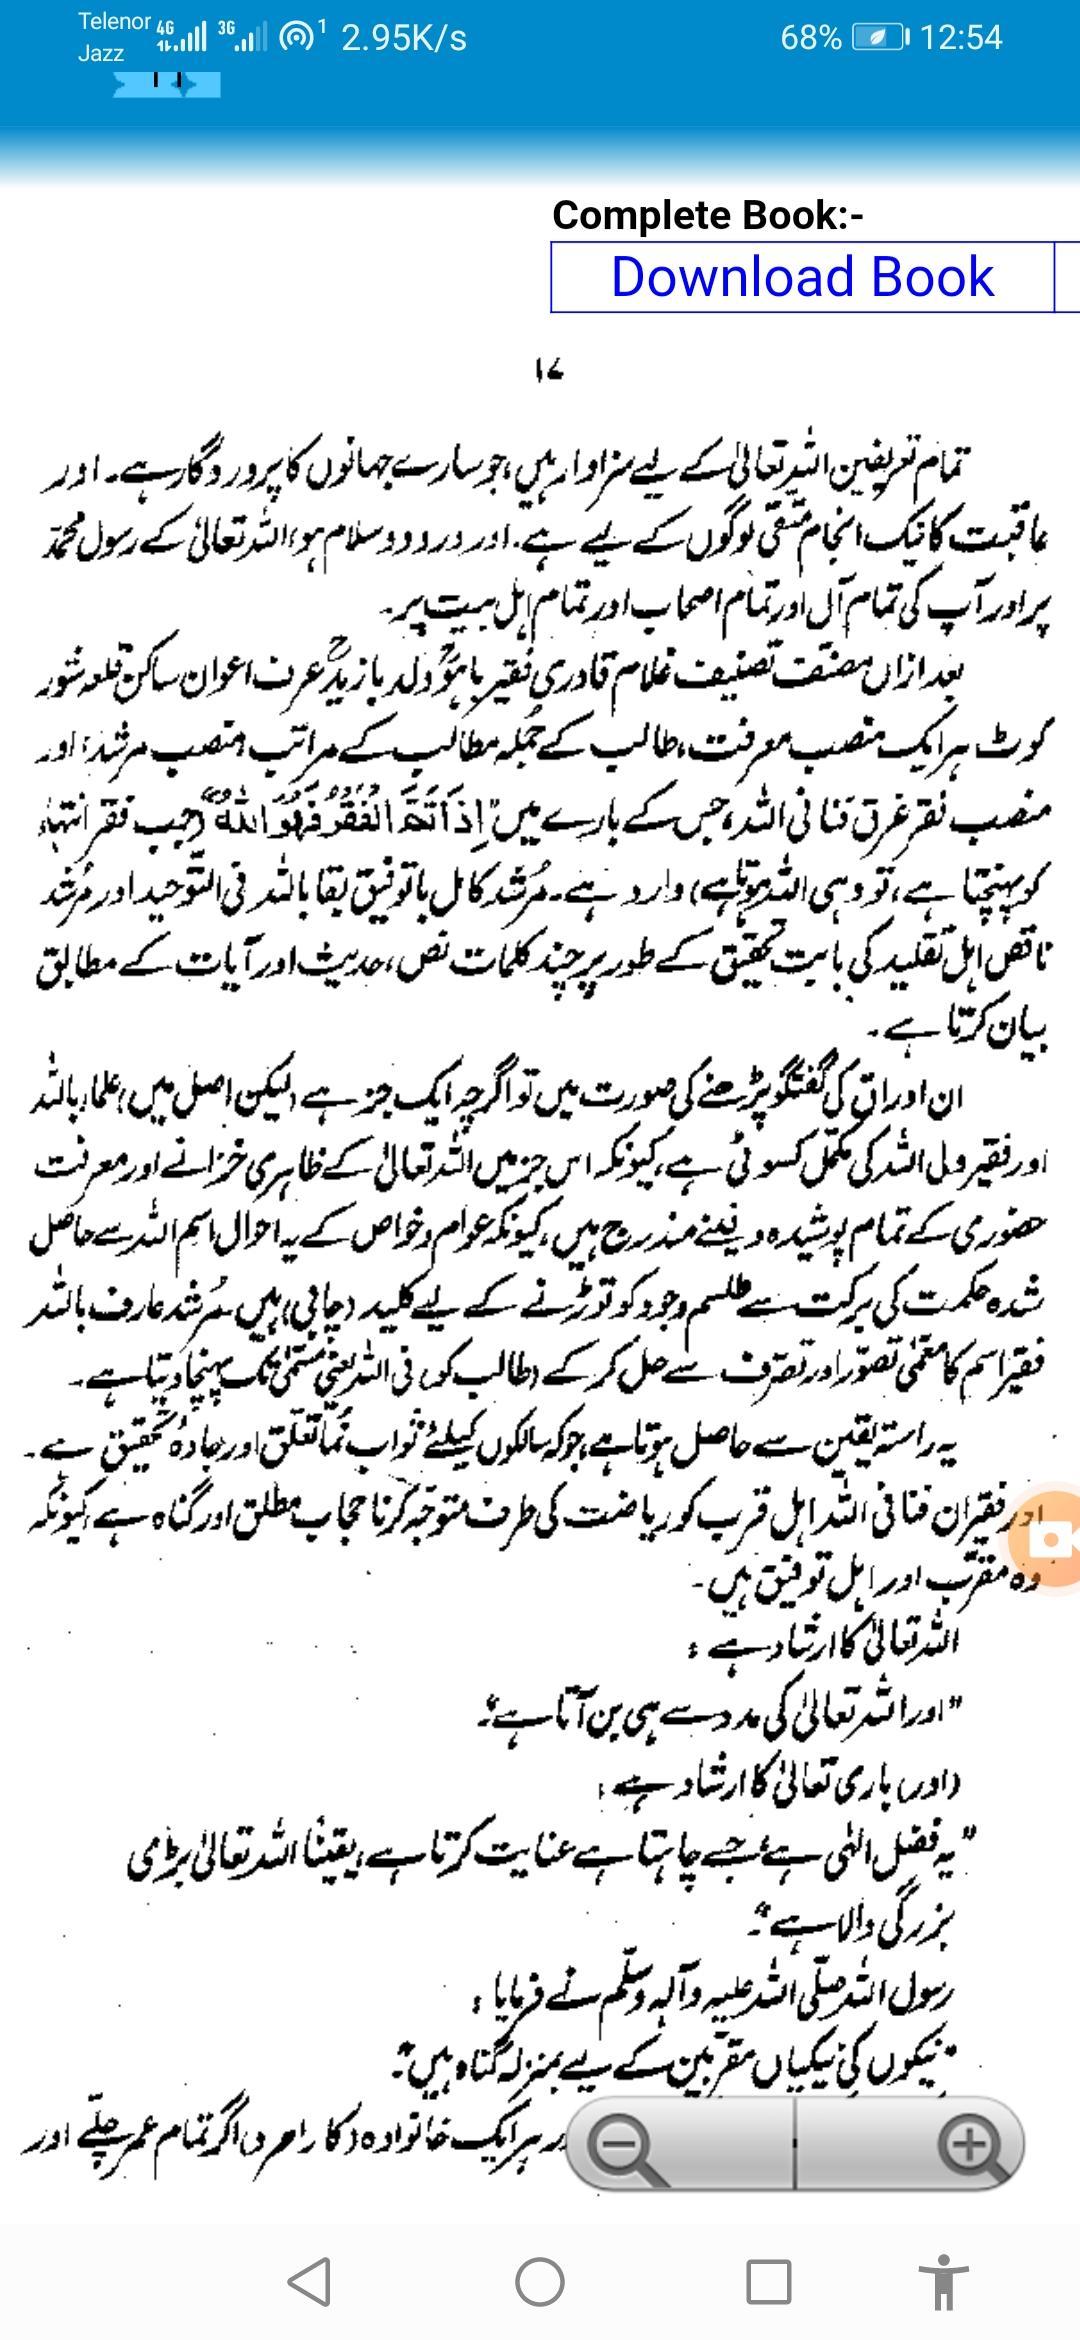 Telenor 4G 3G 1 2.95K/s 68% 12:54
Jazz
Complete Book:-
Download Book
۱۷
تمام تعریفین اللہ تعالیٰ کے لیے سزاوار ہیں، جو سارے جہانوں کا پروردگار ہے۔ اور
عاقبت کا نیک انجام متقی لوگوں کے لیے ہے۔ اور درود و سلام ہو، اللہ تعالیٰ کے رسول محمدؐ
پر اور آپ کی تمام آل اور تمام اصحاب اور تمام اہل بیت پر۔
بعد ازاں مصنف تصنیف غلام قادری فقیر باہوؒ ولد بازیدؒ عرف اعوان ساکن قلعہ شور
کوٹ ہر ایک منصب معرفت، طالب کے جملہ مطالب کے مراتب، منصب مرشد، اور
منصب فقر غرق فنا فی اللہ، جس کے بارے میں "اِذَا تَمَّ الْفَقْرُ فَهُوَ اللهُ" (جب فقر انتہاء
کو پہنچتا ہے، تو وہی اللہ ہوتا ہے) وارد ہے۔ مُرشد کامل با توفیق بقا باللہ فی التوحید اور مُرشد
ناقص اہل تقلید کی بابت تحقیق کے طور پر چند کلمات نص، حدیث اور آیات کے مطابق
بیان کرتا ہے۔
ان اوراق کی گفتگو پڑھنے کی صورت میں تو اگرچہ ایک جز ہے، لیکن اصل میں، علماء باللہ
اور فقیر ولی اللہ کی مکمل کسوٹی ہے، کیونکہ اس جز میں اللہ تعالیٰ کے ظاہری خزانے اور معرفت
حضوری کے تمام پوشیدہ دفینے مندرج ہیں، کیونکہ عوام و خواص کے یہ احوال اسم اللہ سے حاصل
شدہ حکمت کی برکت سے طلسم وجود کو توڑنے کے لیے کلید (چابی) ہیں۔ مُرشد عارف باللہ
فقیر اسم کا معمیٰ تصوّر اور تصرّف سے حل کر کے (طالب کو) فی اللہ یعنی مسمّیٰ تک پہنچا دیتا ہے۔
یہ راستہ یقین سے حاصل ہوتا ہے، جو کہ سالکوں کیلئے ثواب نُما تعلّق اور جادۂ تحقیق ہے۔
اور فقیران فنا فی اللہ اہل قرب کو ریاضت کی طرف متوجّہ کرنا حجاب مطلق اور گناہ ہے، کیونکہ
وہ مقرّب اور اہل توفیق ہیں۔
اللہ تعالیٰ کا ارشاد ہے :
"اور اللہ تعالیٰ کی مدد سے ہی بن آتا ہے"۔
(اور) باری تعالیٰ کا ارشاد ہے :
"یہ فضل الٰہی ہے، جسے چاہتا ہے عنایت کرتا ہے، یقینًا اللہ تعالیٰ بڑی
بزرگی والا ہے"۔
رسول اللہ صلّی اللہ علیہ وآلہ وسلّم نے فرمایا :
"نیکوں کی نیکیاں مقرّبین کے لیے بمنزلہ گناہ ہیں"۔
ہر ایک خانوادہ (کا راہرو) اگر تمام عمر چلّے اور